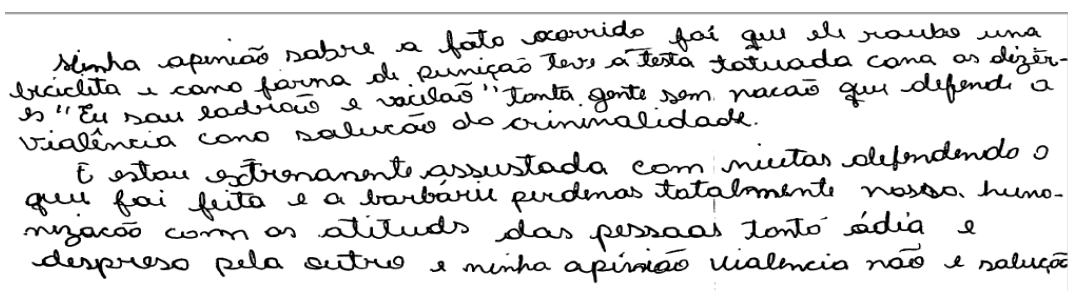 Minha opinião sobre o fato ocorrido foi que ele roubo uma
bicicleta e como forma de punição teve a testa tatuada com os dizer-
es "Eu sou ladrão e vacilão" tanta gente sem nocão que defende a
violência como solucão do criminalidade.
E estou extremamente assustada com muitas defendendo o
que foi feito e a barbárie perdemos totalmente nossa humo-
nizacão com as atituds das pessoas tonto ódio e
despreso pelo outro e minha opinião violencia não e solução